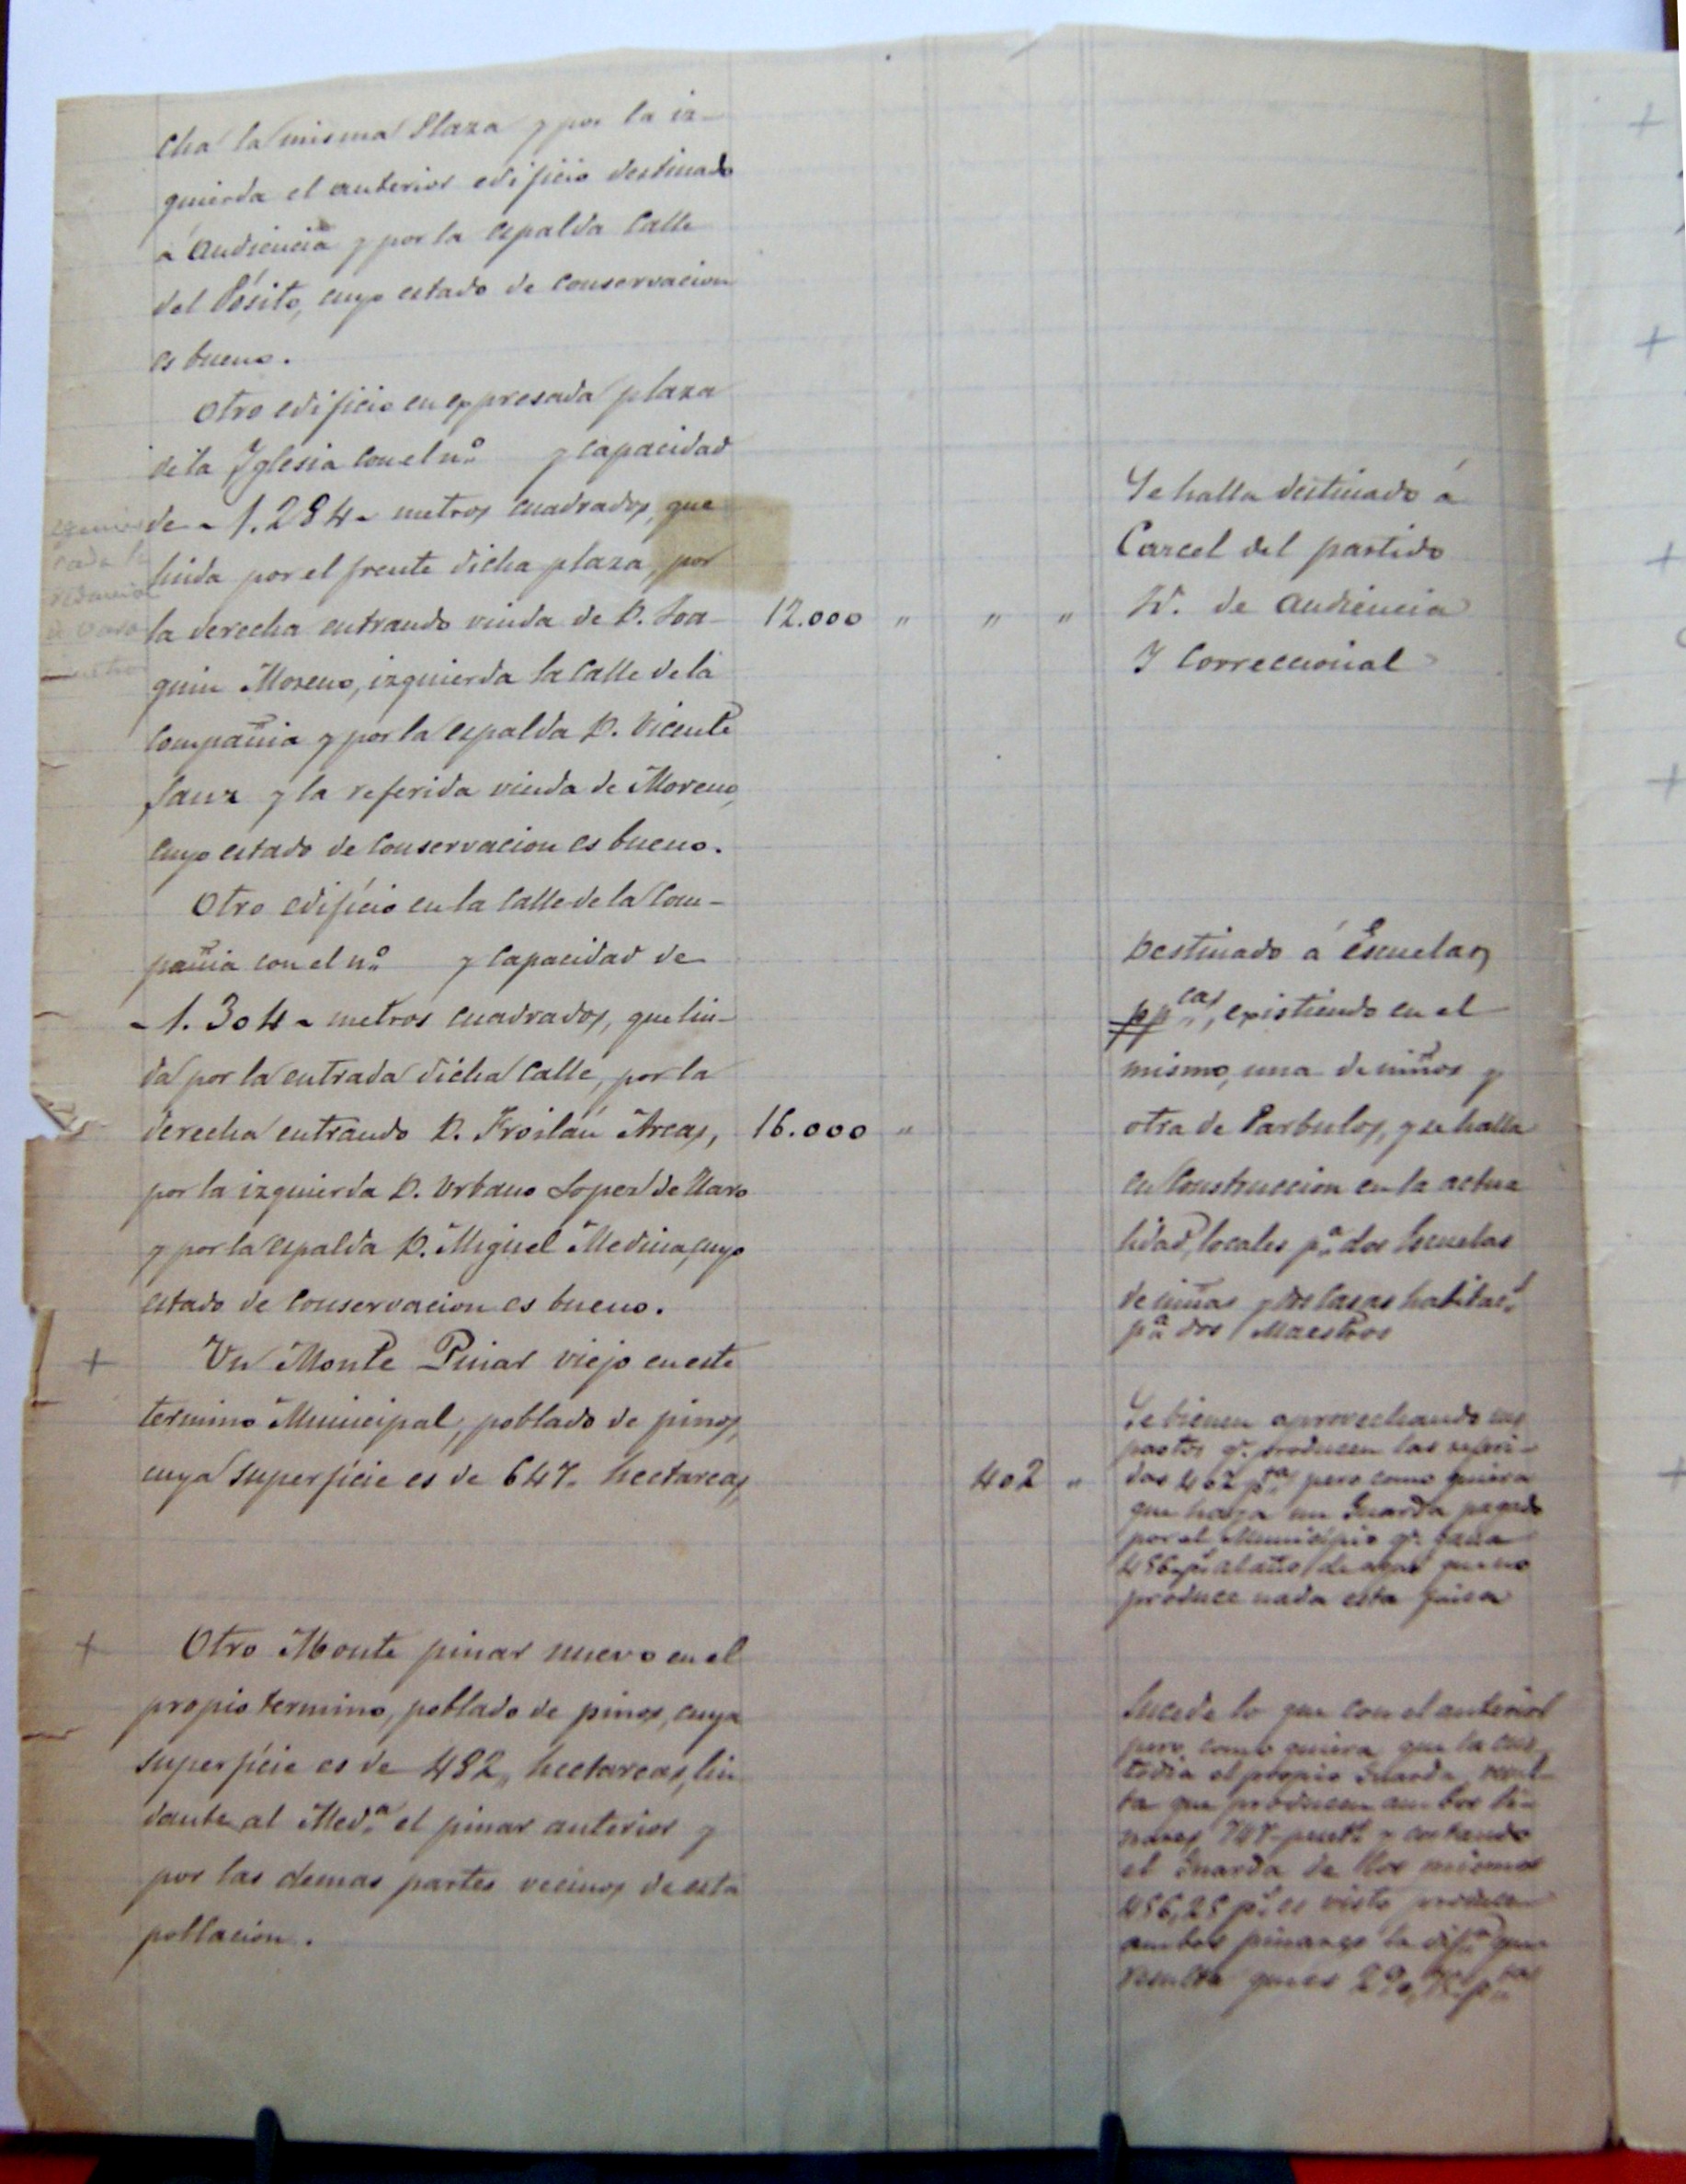 cha la misma Plaza y por la iz-
quierda el anterior edificio destinado
á Audiencia y por la espalda Calle
del Pósito, cuyo estado de conservacion
es bueno.
Otro edificio en expresada plaza
de la Yglesia con el nº y capacidad
de - 1.284 - metros cuadrados, que
linda por el frente dicha plaza, por
la derecha entrando viuda de D. Joa-
quin Moreno, izquierda la Calle de la
Compañia y por la espalda D. Vicente
Sanz y la referida viuda de Moreno,
cuyo estado de Conservacion es bueno.
12.000 " " "
Se halla destinado á
Carcel del partido
Yd. de Audiencia
Y Correccional
Otro edificio en la Calle de la Com-
pañia con el nº y Capacidad de
- 1.304 - metros cuadrados, que lin-
da por la entrada dicha Calle, por la
derecha entrando D. Froilán Arcas,
por la izquierda D. Urbano Lopez de Haro
y por la espalda D. Miguel Medina, cuyo
estado de Conservacion es bueno.
16.000 "
Destinado á Escuelas
ppcas, existiendo en el
mismo, una de niños y
otra de Parbulos, y se halla
en Construccion en la actua
lidad, locales pª dos Escuelas
de niñas y dos Casas habitac.
pª dos Maestros
+ Un Monte Pinar viejo en este
termino Municipal, poblado de pinos,
cuya Superficie es de 647. hectareas,
402 "
Se bienen aprovechando sus
pastos q. producen las referi-
das 402 ptas pero como quiera
que haya un Guarda pagado
por el Municipio q. gana
456 al año de aqui que no
produce nada esta finca
+ Otro Monte pinar nuevo en el
propio termino, poblado de pinos, cuya
superficie es de 482,, hectareas, lin
dante al Medª el pinar anterior y
por las demas partes vecinos de esta
poblacion.
Sucede lo que con el anterior
pero como quiera que la cus
todia el propio Guarda, resul-
ta que producen ambos Pi-
nares 747 y costando
el Guarda de los mismos
456,25 es visto producen
ambos pinares la difª que
resulta que es